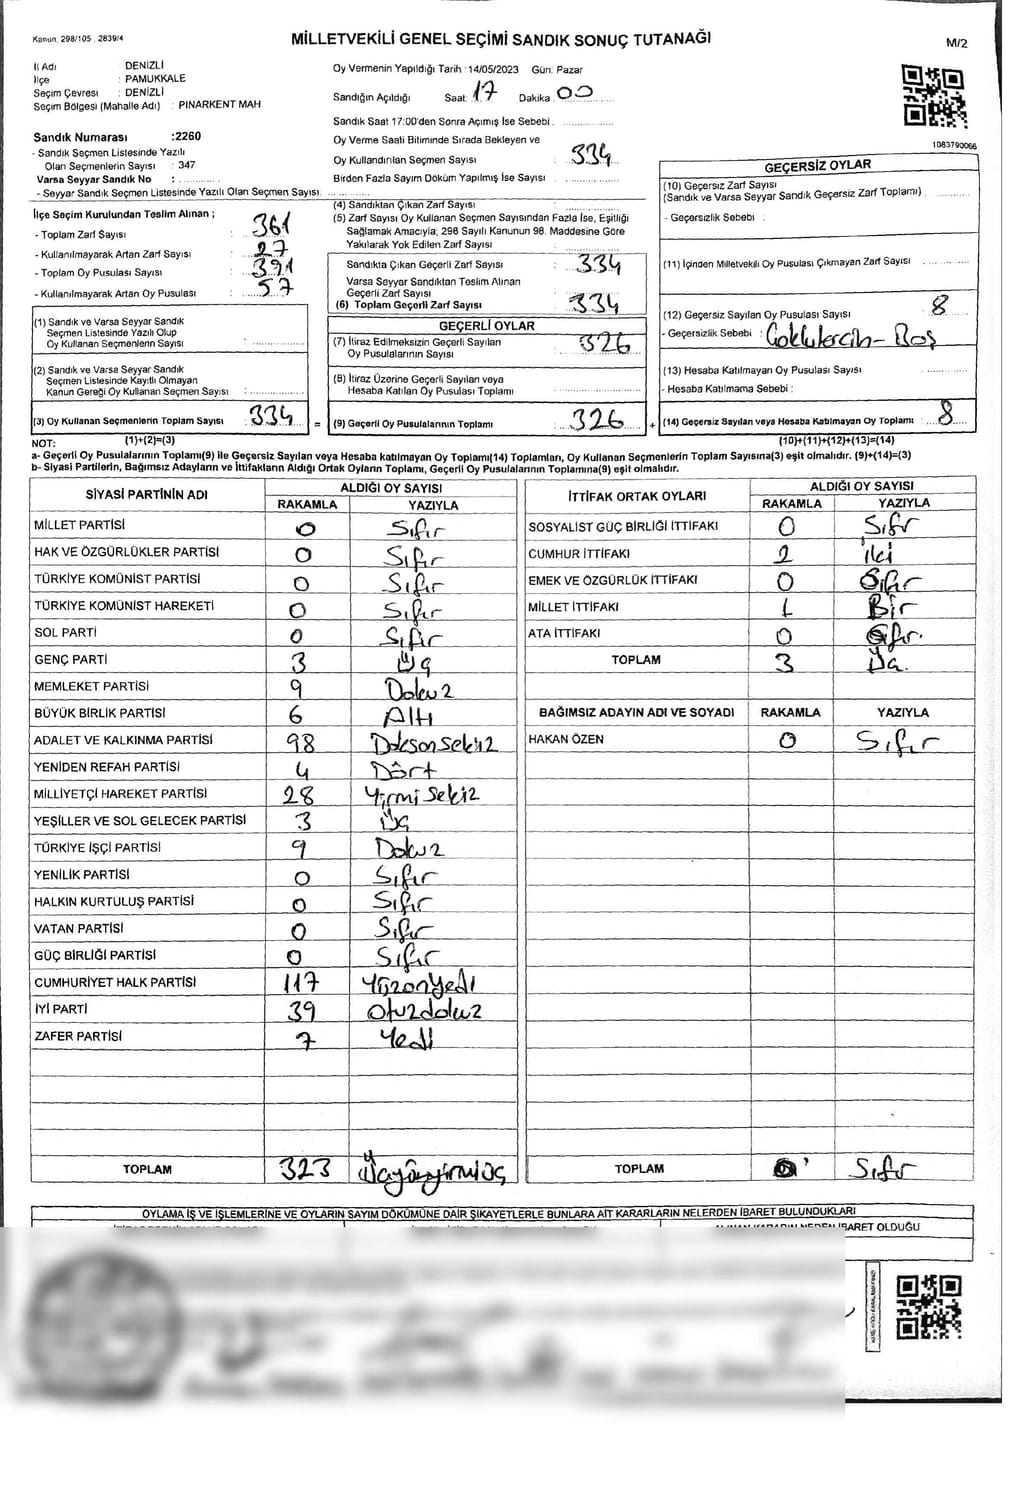 Kanun. 298/105 . 2839/4
MİLLETVEKİLİ GENEL SEÇİMİ SANDIK SONUÇ TUTANAĞI
M/2
İl Adı : DENİZLİ
İlçe : PAMUKKALE
Seçim Çevresi : DENİZLİ
Seçim Bölgesi (Mahalle Adı) : PINARKENT MAH
Sandık Numarası :2260
- Sandık Seçmen Listesinde Yazılı
Olan Seçmenlerin Sayısı : 347
Varsa Seyyar Sandık No :
- Seyyar Sandık Seçmen Listesinde Yazılı Olan Seçmen Sayısı.
Oy Vermenin Yapıldığı Tarih :14/05/2023 Gün: Pazar
Sandığın Açıldığı Saat: 17 Dakika. 00
Sandık Saat 17:00'den Sonra Açımış İse Sebebi.
Oy Verme Saati Bitiminde Sırada Bekleyen ve
Oy Kullandırılan Seçmen Sayısı : 334
Birden Fazla Sayım Döküm Yapılmış İse Sayısı :
1083790066
İlçe Seçim Kurulundan Teslim Alınan ;
- Toplam Zarf Sayısı : 361
- Kullanılmayarak Artan Zarf Sayısı : 27
- Toplam Oy Pusulası Sayısı : 391
- Kullanılmayarak Artan Oy Pusulası : 57
(1) Sandık ve Varsa Seyyar Sandık
Seçmen Listesinde Yazılı Olup
Oy Kullanan Seçmenlerın Sayısı :
(2) Sandık ve Varsa Seyyar Sandık
Seçmen Listesinde Kayıtlı Olmayan
Kanun Gereği Oy Kullanan Seçmen Sayısı :
(3) Oy Kullanan Seçmenlerin Toplam Sayısı : 334 =
(4) Sandıktan Çıkan Zarf Sayısı :
(5) Zarf Sayısı Oy Kullanan Seçmen Sayısından Fazla İse, Eşitliği
Sağlamak Amacıyla; 298 Sayılı Kanunun 98. Maddesine Göre
Yakılarak Yok Edilen Zarf Sayısı :
Sandıkta Çıkan Geçerli Zarf Sayısı : 334
Varsa Seyyar Sandıktan Teslim Alınan
Geçerli Zarf Sayısı :
(6) Toplam Geçerli Zarf Sayısı : 334
GEÇERLİ OYLAR
(7) İtiraz Edilmeksizin Geçerli Sayılan
Oy Pusulalarının Sayısı : 326
(8) İtiraz Üzerine Geçerli Sayılan veya
Hesaba Katılan Oy Pusulası Toplamı :
(9) Geçerli Oy Pusulalarının Toplamı : 326 +
GEÇERSİZ OYLAR
(10) Geçersiz Zarf Sayısı
(Sandık ve Varsa Seyyar Sandık Geçersiz Zarf Toplamı)
- Geçersizlik Sebebi :
(11) İçinden Milletvekili Oy Pusulası Çıkmayan Zarf Sayısı
(12) Geçersiz Sayılan Oy Pusulası Sayısı : 8
- Geçersizlik Sebebi : Çoklutercih - Boş
(13) Hesaba Katılmayan Oy Pusulası Sayısı :
- Hesaba Katılmama Sebebi :
(14) Geçersiz Sayılan veya Hesaba Katılmayan Oy Toplamı : 8
NOT: (1)+(2)=(3) (10)+(11)+(12)+(13)=(14)
a- Geçerli Oy Pusulalarının Toplamı(9) ile Geçersiz Sayılan veya Hesaba katılmayan Oy Toplamı(14) Toplamları, Oy Kullanan Seçmenlerin Toplam Sayısına(3) eşit olmalıdır. (9)+(14)=(3)
b- Siyasi Partilerin, Bağımsız Adayların ve İttifakların Aldığı Ortak Oyların Toplamı, Geçerli Oy Pusulalarının Toplamına(9) eşit olmalıdır.
SİYASİ PARTİNİN ADI ALDIĞI OY SAYISI
RAKAMLA YAZIYLA
MİLLET PARTİSİ 0 Sıfır
HAK VE ÖZGÜRLÜKLER PARTİSİ 0 Sıfır
TÜRKİYE KOMÜNİST PARTİSİ 0 Sıfır
TÜRKİYE KOMÜNİST HAREKETİ 0 Sıfır
SOL PARTİ 0 Sıfır
GENÇ PARTİ 3 Üç
MEMLEKET PARTİSİ 9 Dokuz
BÜYÜK BİRLİK PARTİSİ 6 Altı
ADALET VE KALKINMA PARTİSİ 98 Doksansekiz
YENİDEN REFAH PARTİSİ 4 Dört
MİLLİYETÇİ HAREKET PARTİSİ 28 Yirmi sekiz
YEŞİLLER VE SOL GELECEK PARTİSİ 3 Üç
TÜRKİYE İŞÇİ PARTİSİ 9 Dokuz
YENİLİK PARTİSİ 0 Sıfır
HALKIN KURTULUŞ PARTİSİ 0 Sıfır
VATAN PARTİSİ 0 Sıfır
GÜÇ BİRLİĞİ PARTİSİ 0 Sıfır
CUMHURİYET HALK PARTİSİ 117 Yüzonyedi
İYİ PARTİ 39 Otuzdokuz
ZAFER PARTİSİ 7 Yedi
TOPLAM 323 Üçyüzyirmiüç
İTTİFAK ORTAK OYLARI ALDIĞI OY SAYISI
RAKAMLA YAZIYLA
SOSYALİST GÜÇ BİRLİĞİ İTTİFAKI 0 Sıfır
CUMHUR İTTİFAKI 2 İki
EMEK VE ÖZGÜRLÜK İTTİFAKI 0 Sıfır
MİLLET İTTİFAKI 1 Bir
ATA İTTİFAKI 0 Sıfır.
TOPLAM 3 Üç.
BAĞIMSIZ ADAYIN ADI VE SOYADI RAKAMLA YAZIYLA
HAKAN ÖZEN 0 Sıfır
TOPLAM 0 Sıfır
OYLAMA İŞ VE İŞLEMLERİNE VE OYLARIN SAYIM DÖKÜMÜNE DAİR ŞİKAYETLERLE BUNLARA AİT KARARLARIN NELERDEN İBARET BULUNDUKLARI
ALINAN KARARIN NEDEN İBARET OLDUĞU